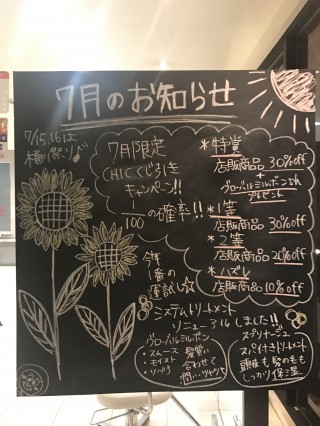 7月のお知らせ
7/15,16は
橘祭り
7月限定
CHICくじ引き
キャンペーン!!
1/100の確率!!
今年
一番の
運試し☆
*特賞
店販商品 30%off
+
グローバルミルボン
プレゼント
*1等
店販商品 30%off
*2等
店販商品 20%off
*ハズレ
店販商品 10%off
システムトリートメント
リニューアルしました!!
グローバルミルボン
・スムース
・モイスト
・リペア
髪質に
合わせて
潤い…ツヤツヤ
スプリナージュ
スパ付きトリートメント
頭皮も髪のもも
しっかり保湿